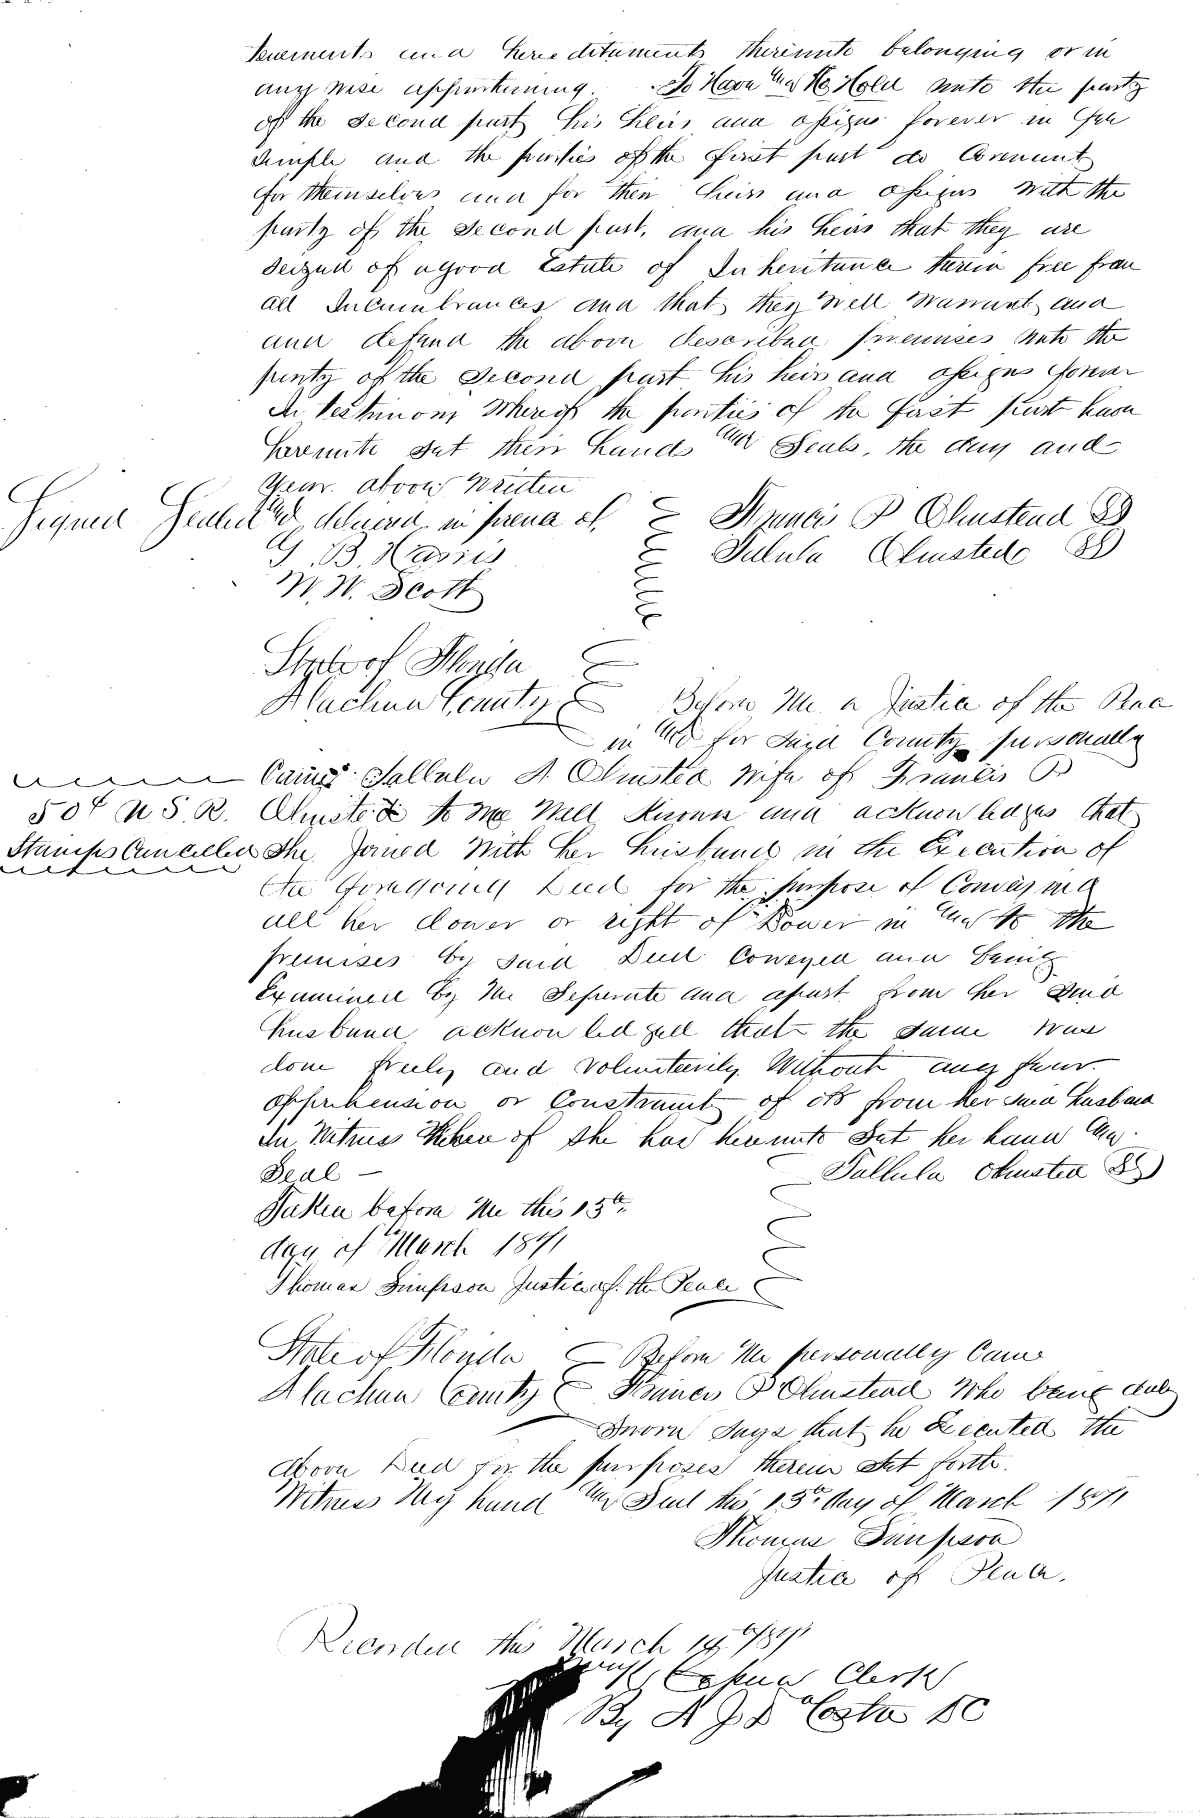 tenements and hereditaments thereunto belonging or in
any wise appurtaining. To Have and To Hold unto the party
of the second part his heirs and assigns forever in Fee
simple and the parties of the first part do Covenant
for themselves and for their heirs and assigns with the
party of the second part, and his heirs that they are
seized of a good Estate of Inheritance therein free from
all Incumbrances and that they will warrant and
and defend the above described premises unto the
party of the second part his heirs and assigns forever
In testimony Whereof the parties of the first part have
hereunto set their hands and Seals, the day and
year above Written
Signed Sealed and delivered in presence of
Francis P Olmstead SS
G. B. Harris
Tulula Olmstede SS
W. W. Scott
State of Florida
Alachua County Before Me a Justice of the Peace
in and for said County personally
Came Tallula A Olmsted Wife of Francis P
50¢ U S. R. Olmsted to me Well Known and acknowledges that
Stamps Cancelled She Joined With her husband in the Execution of
the foregoing Deed for the purpose of Conveying
all her dower or right of Dower in and to the
premises by said Deed Conveyed and being
Examined by Me Seperate and apart from her said
husband acknowledged that the same was
done freely and voluntarily Without any fear
apprehension or Constraint of or from her said husband
In Witness Whereof she has hereunto Set her hand and
Seal — Tallula Olmsted SS
Taken before Me this 13th
day of March 1871
Thomas Simpson Justice of the Peace
State of Florida Before Me personally Came
Alachua County Francis P Olmstead Who being duly
Sworn says that he Executed the
above Deed for the purposes therein Set forth.
Witness My hand and Seal this 13th day of March 1871
Thomas Simpson
Justice of Peace.
Recorded this March 14th 1871
Clerk
By A J DaCosta DC